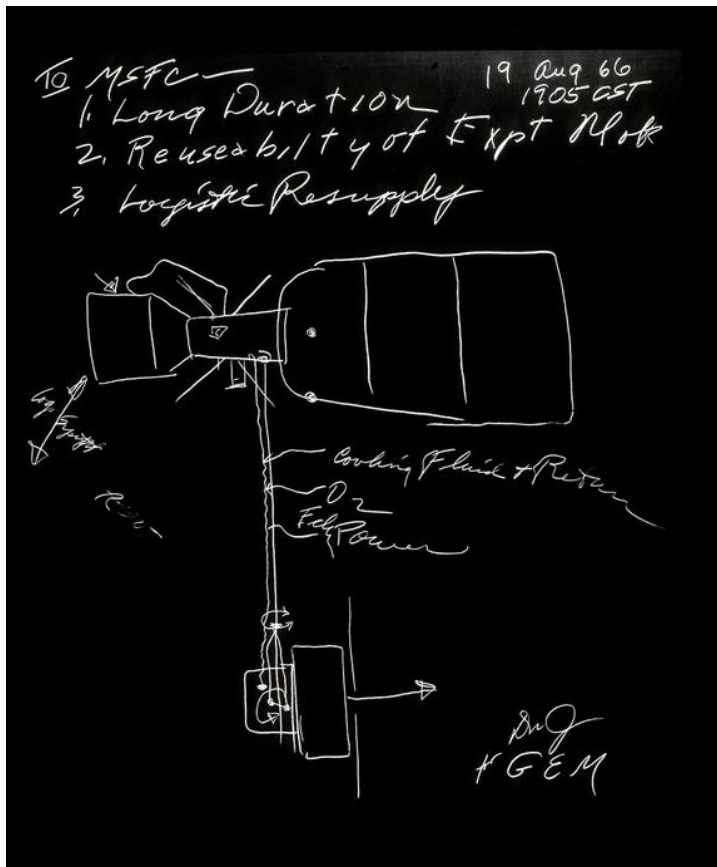 To MSFC —
19 Aug 66
1905 CST
1. Long Duration
2. Reuseabilty of Expt Mok
3. Logistic Resupply
Cooling Fluid + Return
O2
Power
GEM